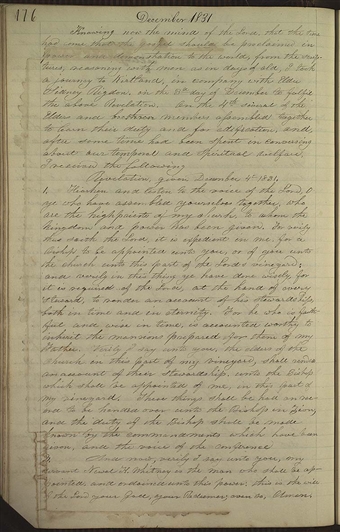 176
December 1831
Knowing now the mind of the Lord, that the time
had come that the gospel should be proclaimed in
power and demonstration to the world, from the scrip-
tures, reasoning with men as in days of old, I took
a journey to Kirtland, in company with Elder
Sidney Rigdon, on the 3d day of December to fulfil
the above Revelation. On the 4th several of the
Elders and brethren members assembled together
to learn their duty and for edification, and,
after some time had been spent in conversing
about our temporal and spiritual welfare,
I received the following
Revelation, given December 4th 1831.
1. Hearken and listen to the voice of the Lord, O
ye who have assembled yourselves together, who
are the high priests of my church, to whom the
kingdom and power has been given. For verily
thus saith the Lord, it is expedient in me, for a
bishop to be appointed unto you, or of you unto
the church in this part of the Lord's vineyard;
and verily in this thing ye have done wisely, for
it is required of the Lord, at the hand of every
steward, to render an account of his stewardship,
both in time and in eternity. For he who is faith-
ful and wise in time, is accounted worthy to
inherit the mansions prepared for them of my
Father. Verily I say unto you, the elders of the
church in this part of my vineyard, shall render
an account of their stewardship, unto the Bishop
which shall be appointed of me, in this part of
my vineyard. These things shall be had on rec-
ord to be handed over unto the Bishop in Zion;
and the duty of the Bishop shall be made
known by the commandments which have been
given, and the voice of the conference
2. And now, verily I say unto you, my
servant Newel K. Whitney is the man who shall be ap-
pointed, and ordained unto this power: this is the will
of the Lord your God, your Redeemer; even so, Amen.